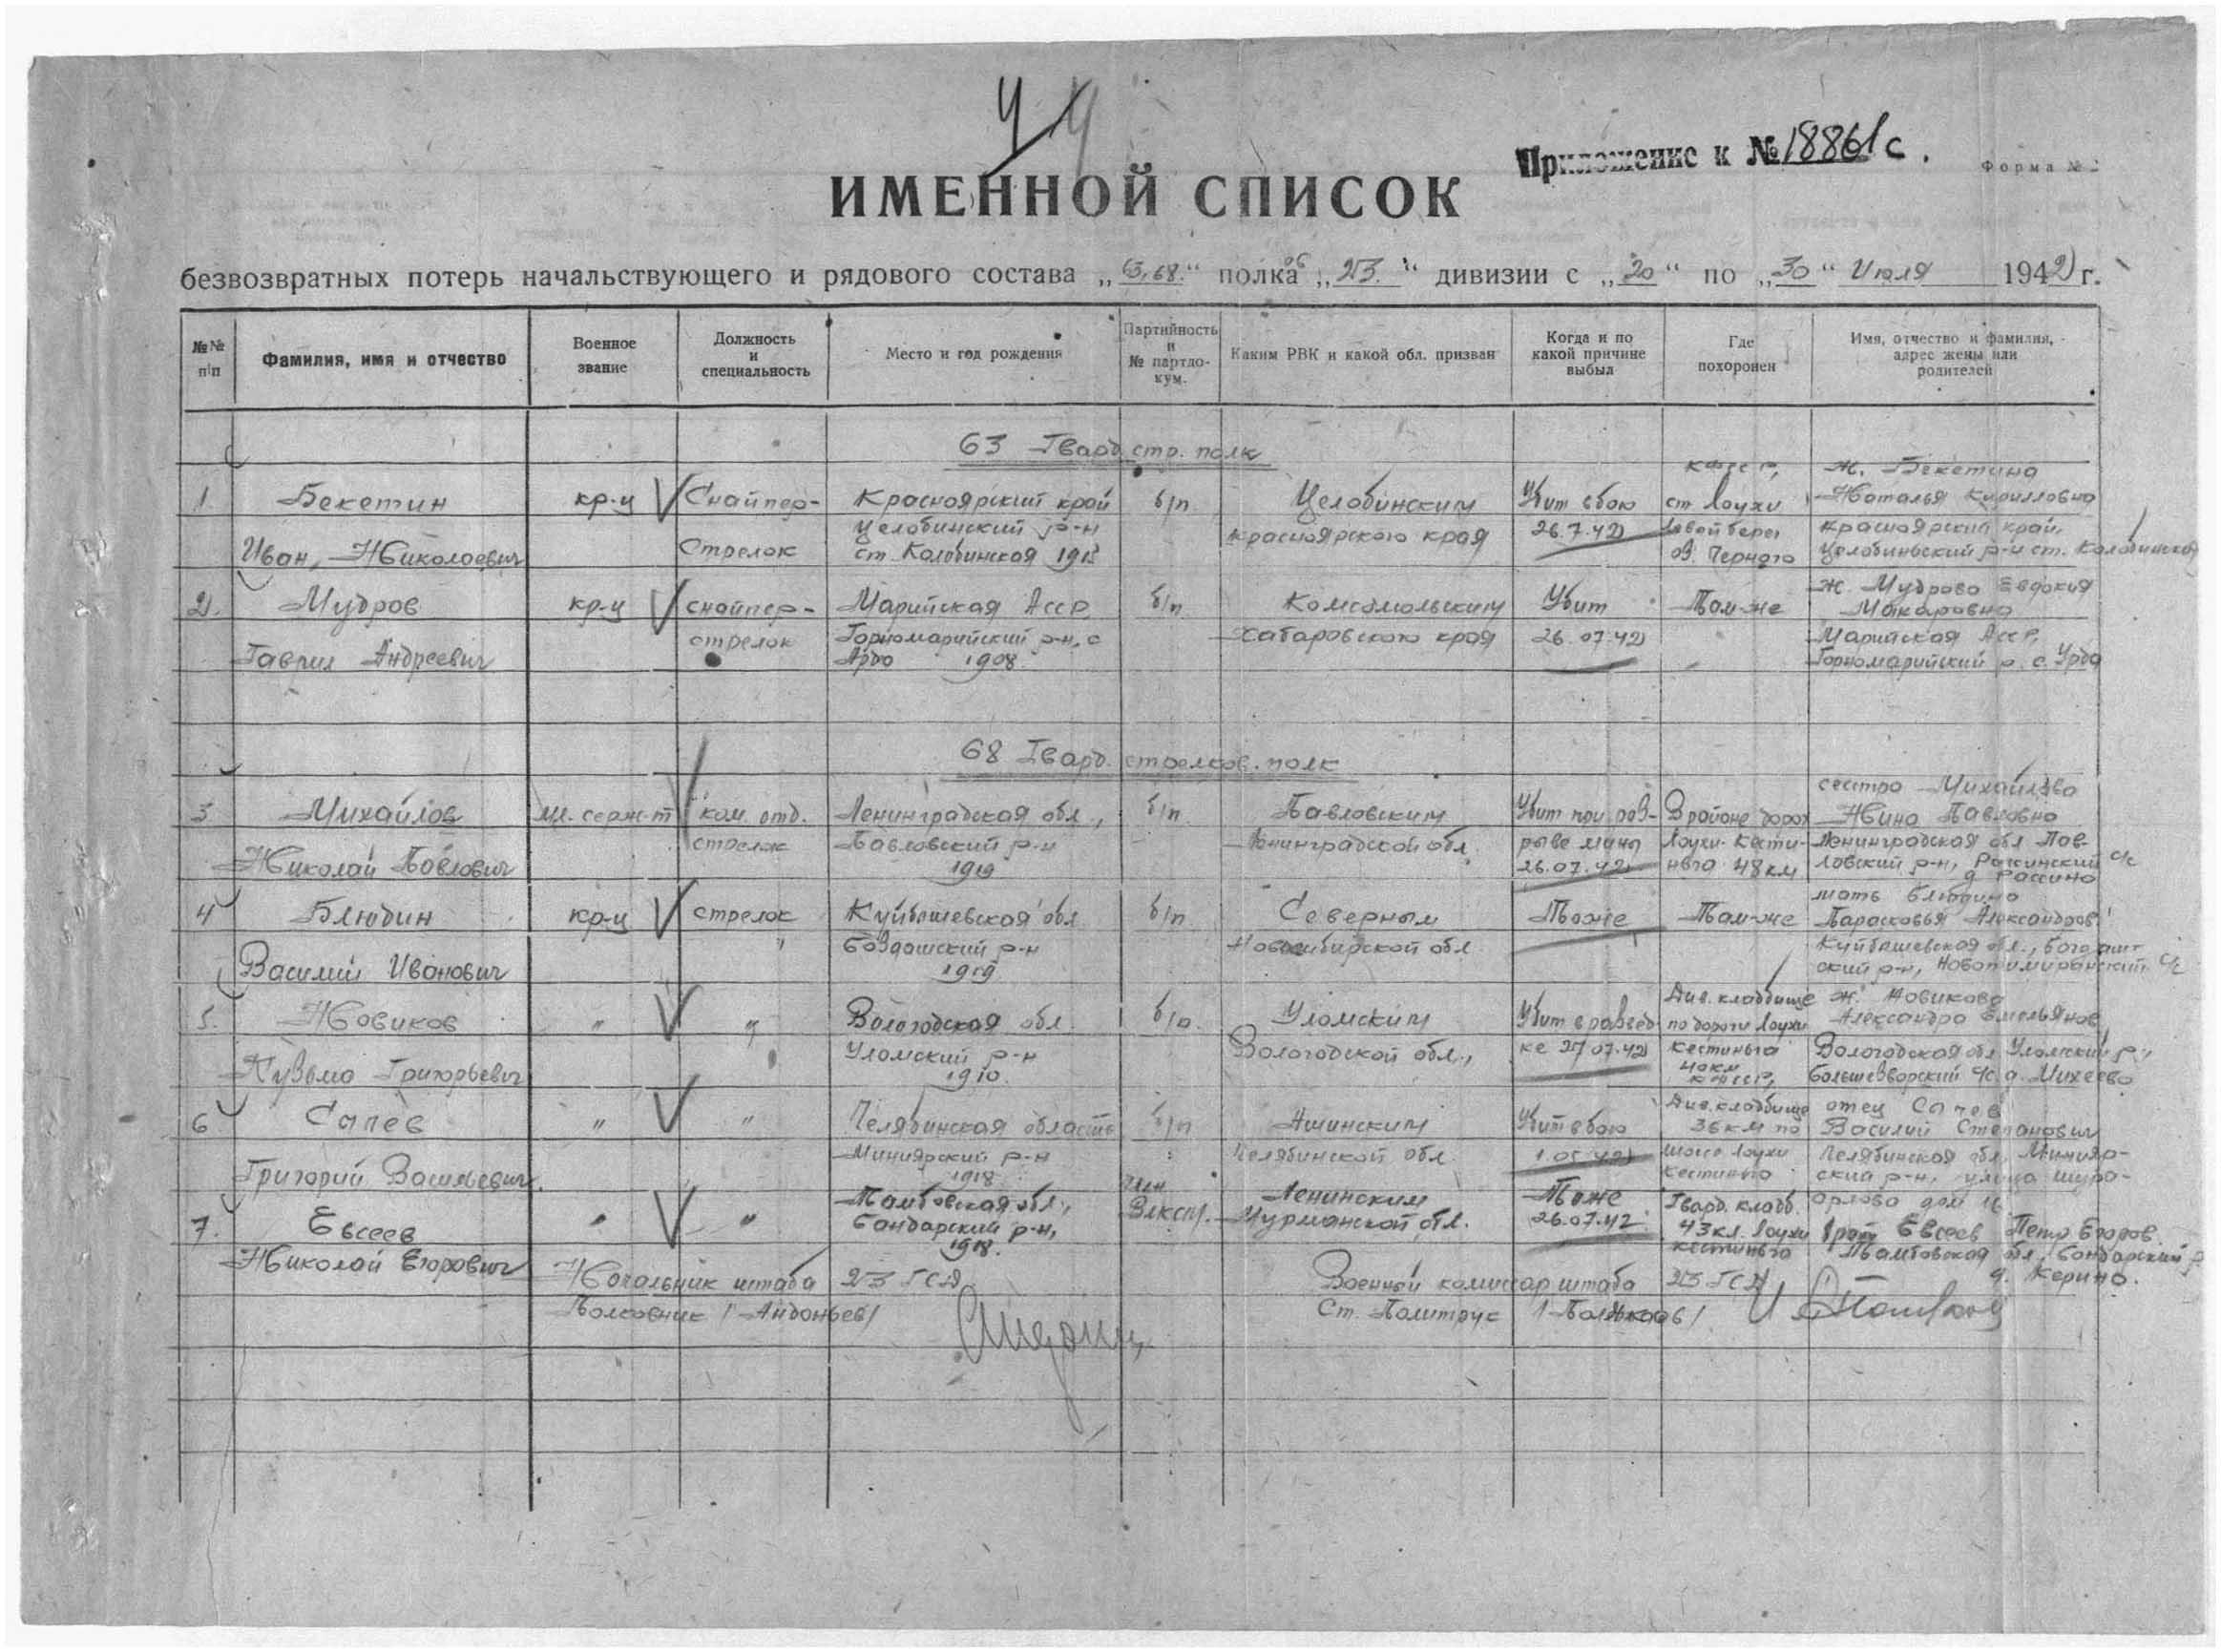 Приложение к № 18861с.
Форма №
ИМЕННОЙ СПИСОК
безвозвратных потерь начальствующего и рядового состава „63,68.“ полка „23.“ дивизии с „20“ по „30“ Июля 1942 г.
№№ п/п
Фамилия, имя и отчество
Военное звание
Должность и специальность
Место и год рождения
Партийность и № партдокум.
Каким РВК и какой обл. призван
Когда и по какой причине выбыл
Где похоронен
Имя, отчество и фамилия, адрес жены или родителей
63 Гвард. стр. полк
1. Бекетин кр-ц Снайпер- Красноярский край б/п Целобинским Убит в бою ст. Лоухи ж. Бекетина Наталья Кирилловна
Иван Николаевич Стрелок Целобинский р-н ст. Колобинская Красноярского края 26.7.42 Левый берег оз. Черного Красноярский край, Целобинский р-н ст.
2. Мудров кр-ц снайпер- Марийская АССР, б/п Комсомольским Убит Там-же ж. Мудрова Евдокия Макаровна
Гаврил Андреевич стрелок Горномарийский р-н, с Ардо 1908 Хабаровского края 26.07.42 Марийская АССР, Горномарийский р. с.
68 Гвард. стрелков. полк
3 Михайлов мл. серж-т ком. отд. Ленинградская обл., б/п Павловским Убит при раз- В районе дорог сестра Михайлова Нина Павловна
Николай Павлович стрелок Павловский р-н 1919 Ленинградской обл. рыве мины 26.07.42 Лоухи-Кести-ньга 48 км Ленинградская обл Пав-ловский р-н,
4 Блюдин кр-ц стрелок Куйбышевская обл б/п Северным Тоже Там-же мать Блюдина Парасковья Александров
Василий Иванович " р-н 1919 Новосибирской обл. Куйбышевская обл., ский р-н, с/с
5. Новиков " " Вологодская обл. б/п. Уломским Убит в развед- Див. кладбище по дороги Лоухи ж. Новикова Александра Емельянов
Кузьма Григорьевич Уломский р-н 1910. Вологодской обл., ке 27.07.42 Кестиньга 40 км Вологодская обл Уломский р-н, с/с д. Михеево
6 Сычев " " Челябинская область б/п Ашинским Убит в бою Див. кладбище 36 км по отец Сычев Василий Степанович
Григорий Васильевич. Миньярский р-н 1918 Челябинской обл. шоссе Лоухи Кестиньга Челябинская обл, Минияр-ский р-н, улица
7. Евсеев " " Тамбовская обл., Бондарский р-н, чл. ВЛКСМ. Ленинским Мурманской обл. Тоже 26.07.42 Гвард. кладб. 43 кл. Лоухи брат Евсеев Петр Егоров.
Николай Егорович 1918. Кестиньга Тамбовская обл, Бондарский р д. Керино.
Начальник штаба 23 ГСД Военный комиссар штаба 23 ГСД
Полковник /Андоньев/ Ст. Политрук